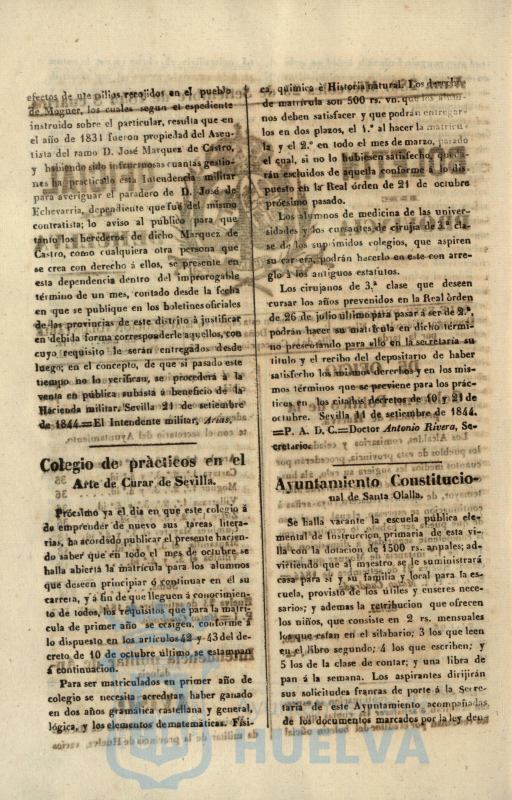 efectos de utensilios recojidos en el pueblo
de Moguer, los cuales segun el espediente
instruido sobre el particular, resulta que en
el año de 1831 fueron propiedad del Asen-
tista del ramo D. José Marquez de Castro,
y habiendo sido infructuosas cuantas gestio-
nes ha practicado esta Intendencia militar
para averiguar el paradero de D. José de
Echevarria, dependiente que fué del mismo
contratista; lo aviso al público para que
tanto los herederos de dicho Marquez de
Castro, como cualquiera otra persona que
se crea con derecho á ellos, se presente en
esta dependencia dentro del improrogable
término de un mes, contado desde la fecha
en que se publique en los boletines oficiales
de las provincias de este distrito á justificar
en debida forma corresponderle aquellos, con
cuyo requisito le serán entregados desde
luego; en el concepto, de que si pasado este
tiempo no lo verifican, se procederá á la
venta en pública subasta á beneficio de la
Hacienda militar. Sevilla 21 de setiembre
de 1844.=El Intendente militar, Arias.
Colegio de pràcticos en el
Arte de Curar de Sevilla.
Próesimo ya el dia en que este colegio á
de emprender de nuevo sus tareas litera-
rias, ha acordado publicar el presente hacien-
do saber que en todo el mes de octubre se
halla abierta la matrícula para los alumnos
que deseen principiar ó continuar en él su
carrera, y á fin de que lleguen á conocimien-
to de todos, los requisitos que para la matrí-
cula de primer año se ecsigen, conforme á
lo dispuesto en los artículos 42 y 43 del de-
creto de 10 de octubre último se estampan
á continuacion.
Para ser matriculados en primer año de
colegio se necesita acreditar haber ganado
en dos años gramática castellana y general,
lógica, y los elementos de matemáticas. Físi-
ca, química è Historia natural. Los derechos
de matrícula son 500 rs. vn. que los alum-
nos deben satisfacer y que podrán entregar-
los en dos plazos, el 1.º al hacer la matrícu-
la y el 2.º en todo el mes de marzo, pasado
el cual, si no lo hubiesen satisfecho, queda-
rán escluidos de aquella conforme á lo dis-
puesto en la Real órden de 21 de octubre
prócsimo pasado.
Los alumnos de medicina de las univer-
sidades y los cursantes de cirujia de 3.ª cla-
se de los suprimidos colegios, que aspiren
su carrera, podrán hacerlo en este con arre-
glo á los antiguos estatutos.
Los cirujanos de 3.ª clase que deseen
cursar los años prevenidos en la Real òrden
de 26 de julio último para pasar á ser de 2.ª,
podrán hacer su matrícula en dicho térmi-
no presentando para ello en la secretaría su
título y el recibo del depositario de haber
satisfecho los mismos derechos y en los mis-
mos términos que se previene para los prác-
ticos en los citados decretos de 10 y 21 de
octubre. Sevilla 11 de setiembre de 1844.
=P. A. D. C.=Doctor Antonio Rivera, Se-
cretario.
Ayuntamiento Constitucio-
nal de Santa Olalla.
Se halla vacante la escuela pública ele-
mental de Instruccion primaria de esta vi-
lla con la dotacion de 1500 rs. anuales; ad-
virtiendo que al maestro se le suministrará
casa para sí y su familia y local para la es-
cuela, provisto de los útiles y enseres nece-
sarios; y ademas la retribucion que ofrecen
los niños, que consiste en 2 rs. mensuales
los que estan en el silabario; 3 los que leen
en el libro segundo; 4 los que escriben; y
5 los de la clase de contar; y una libra de
pan á la semana. Los aspirantes dirijirán
sus solicitudes francas de porte á la Secre-
taría de este Ayuntamiento acompañadas
de los documentos marcados por la ley den-
HUELVA